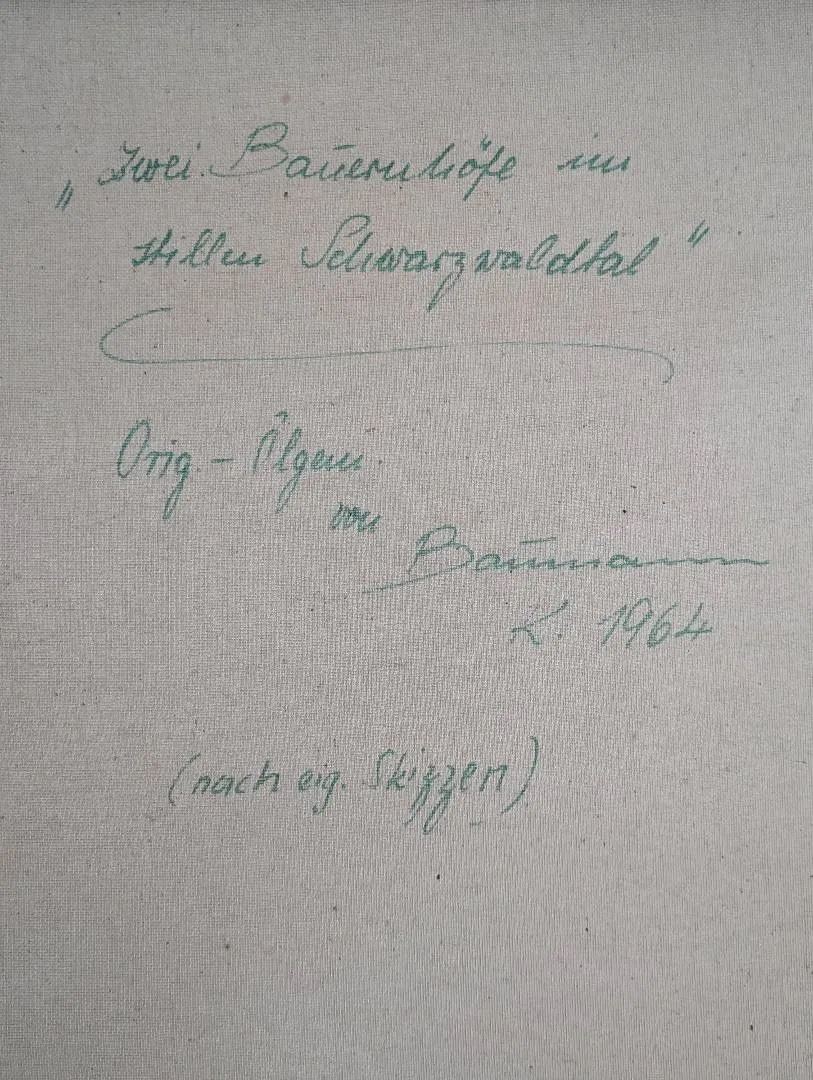 „Zwei Bauernhöfe im
stillen Schwarzwaldtal"
Orig. - Ölgem.
von
Baumann
K. 1964
(nach eig. Skizzen)